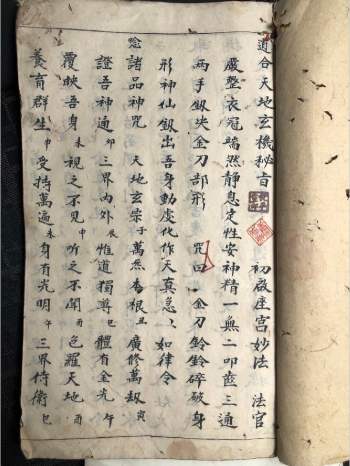 道合天地玄機秘旨
初啟座宮妙法 法官
嚴整衣冠端然靜息定性安神精一無二叩齒三通
兩手劔決金刀部形 咒曰 金刀鈴鈴碎破身
形神仙劔出吾身動虔化作天真急、如律令
念諸品神咒 天地玄宗子萬炁本根丑廣修萬劫寅
證吾神通卯三界內外辰惟道獨尊巳體有金光午
覆映吾身未視之不見申听之不聞酉包羅天地酉
養育群生申受持萬遍未身有光明午三界侍衛巳